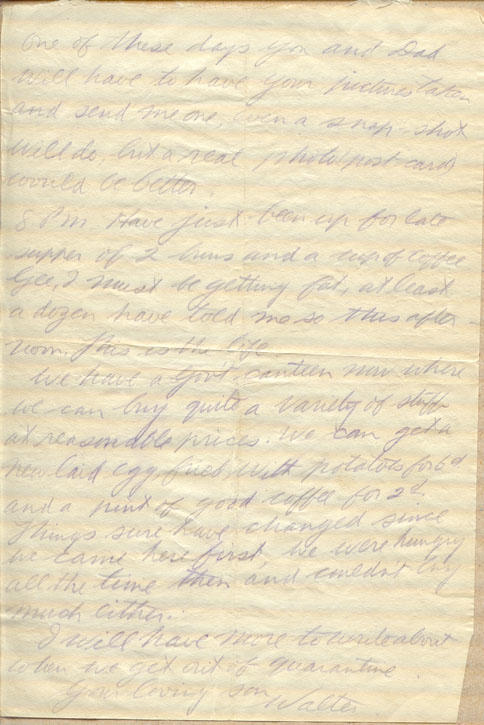 One of these days you and Dad
will have to have your pictures taken
and send me one, even a snap-shot
will do, but a real photo post card
would be better.
8 P.M. Have just been up for late
supper of 2 buns and a cup of coffee
Gee, I must be getting fat, at least
a dozen have told me so this after-
noon. This is the life
We have a Govt. canteen now where
we can buy quite a variety of stuff
at reasonable prices. We can get a
new laid egg fried with potatoes for 6d
and a pint of good coffee for 2d.
Things sure have changed since
we came here first, we were hungry
all the time then and couldn't buy
much either.
I will have more to write about
when we get out of quarantine
Your loving son
Walter